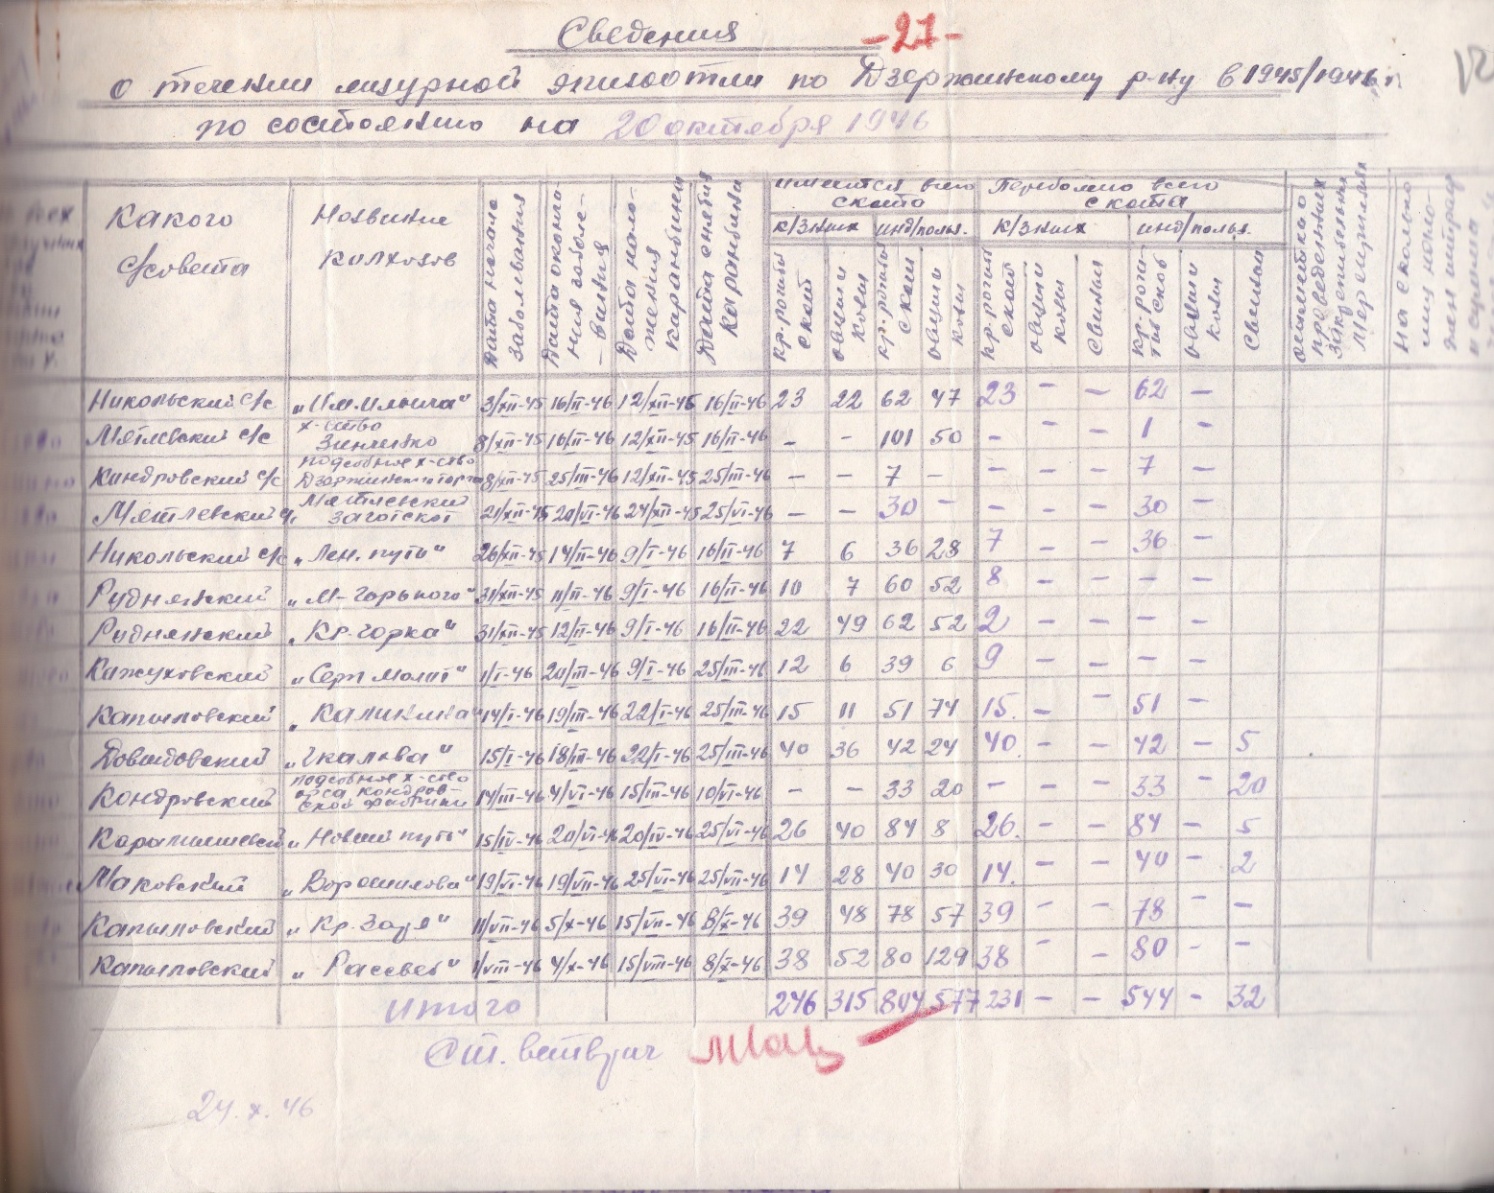 Сведения -27-
о течении ящурной эпизоотии по Дзержинскому р-ну в 1945/1946 г
по состоянию на 20 октября 1946
Какого с/совета
Название колхозов
Дата начала заболевания
Дата окончания заболевания
Дата наложения карантина
Дата снятия карантина
имеется всего скота
Переболело всего скота
к/зных инд/польз. к/зных инд/польз.
кр. рогатый скот
овцы и козы
кр. рогатый скот
овцы и козы
кр. рогатый скот
овцы и козы
свиньи
кр. рогатый скот
овцы и козы
свиньи
отметка о проведенных мероприятиях
на сколько
Никольский с/с „Им. Ильича" 3/XII-45 16/II-46 12/XII-45 16/II-46 23 22 62 47 23 - - 62 -
Мятлевский с/с х-ство Зинченко 8/XII-45 16/II-46 12/XII-45 16/II-46 - - 101 50 - - - 1 -
Кондровский с/с подсобное х-ство 8/XII-45 25/III-46 12/XII-45 25/III-46 - - 7 - - - - 7 -
Мятлевский с/с Мятлевский Заготскот 21/XII-45 20/VI-46 24/XII-45 25/VI-46 - - 30 - - - - 30 -
Никольский с/с „Лен. путь" 26/XII-45 14/II-46 9/I-46 16/II-46 7 6 36 28 7 - - 36 -
Руднянский „М-Горького" 31/XII-45 11/II-46 9/I-46 16/II-46 10 7 60 52 8 - - - -
Руднянский „Кр. Горка" 31/XII-45 12/II-46 9/I-46 16/II-46 22 49 62 52 2 - - - -
Кожуховский „Серп Молот" 1/I-46 20/III-46 9/I-46 25/III-46 12 6 39 6 9 - - - -
Копыловский „Калинина" 14/I-46 19/III-46 22/I-46 25/III-46 15 11 51 74 15. - - 51 -
Давыдовский „Чкалова" 15/I-46 18/III-46 22/I-46 25/III-46 40 36 42 24 40. - - 42 - 5
Кондровский подсобное х-ство орса кондров-ской фабрики 14/III-46 4/VI-46 15/III-46 10/VI-46 - - 33 20 - - - 33 - 20
Карамышевский „Новый путь" 15/IV-46 20/VI-46 20/IV-46 25/VI-46 26 40 84 8 26. - - 84 - 5
Маковский „Ворошилова" 19/VI-46 19/VII-46 25/VI-46 25/VII-46 14 28 40 30 14. - - 40 - 2
Копыловский „Кр. Заря" 11/VII-46 5/X-46 15/VII-46 8/X-46 39 48 78 57 39 - - 78 - -
Копыловский „Рассвет" 1/VIII-46 4/X-46 15/VIII-46 8/X-46 38 52 80 129 38 - - 80 - -
Итого 246 315 804 577 231 - - 544 - 32
Ст. ветврач
24.X.46